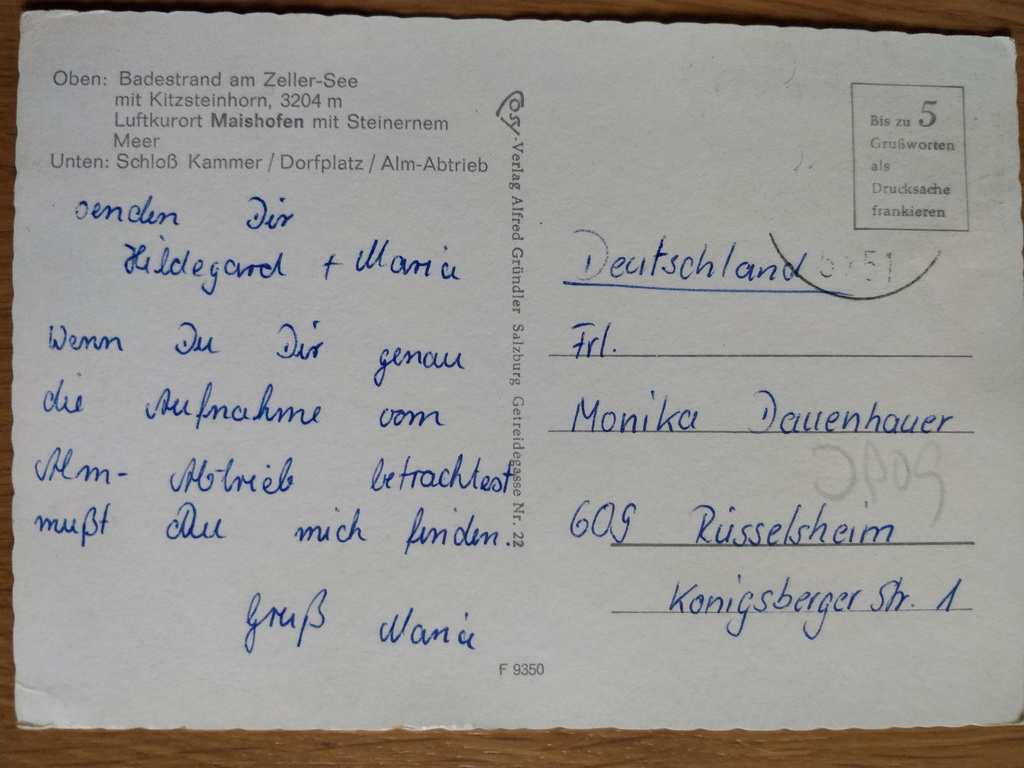 Oben: Badestrand am Zeller-See
mit Kitzsteinhorn, 3204 m
Luftkurort Maishofen mit Steinernem
Meer
Unten: Schloß Kammer / Dorfplatz / Alm-Abtrieb
senden Dir
Hildegard + Maria
Wenn Du Dir genau
die Aufnahme vom
Alm- Abtrieb betrachtest
mußt Du mich finden.
Gruß Maria
Cosy-Verlag Alfred Gründler Salzburg Getreidegasse Nr. 22
F 9350
Bis zu 5
Grußworten
als
Drucksache
frankieren
Deutschland
Frl.
Monika Dauenhauer
609 Rüsselsheim
Konigsberger Str. 1